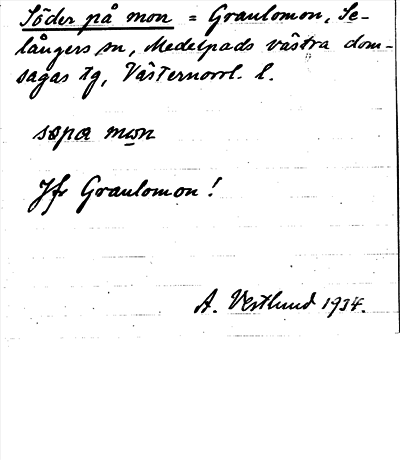 Söder på mon = Graulomon, Se-
långers sn, Medelpads västra dom-
sagas tg, Västernorrl. l.
søpa mon
Jfr Graulomon!
A. Vestlund 1934.